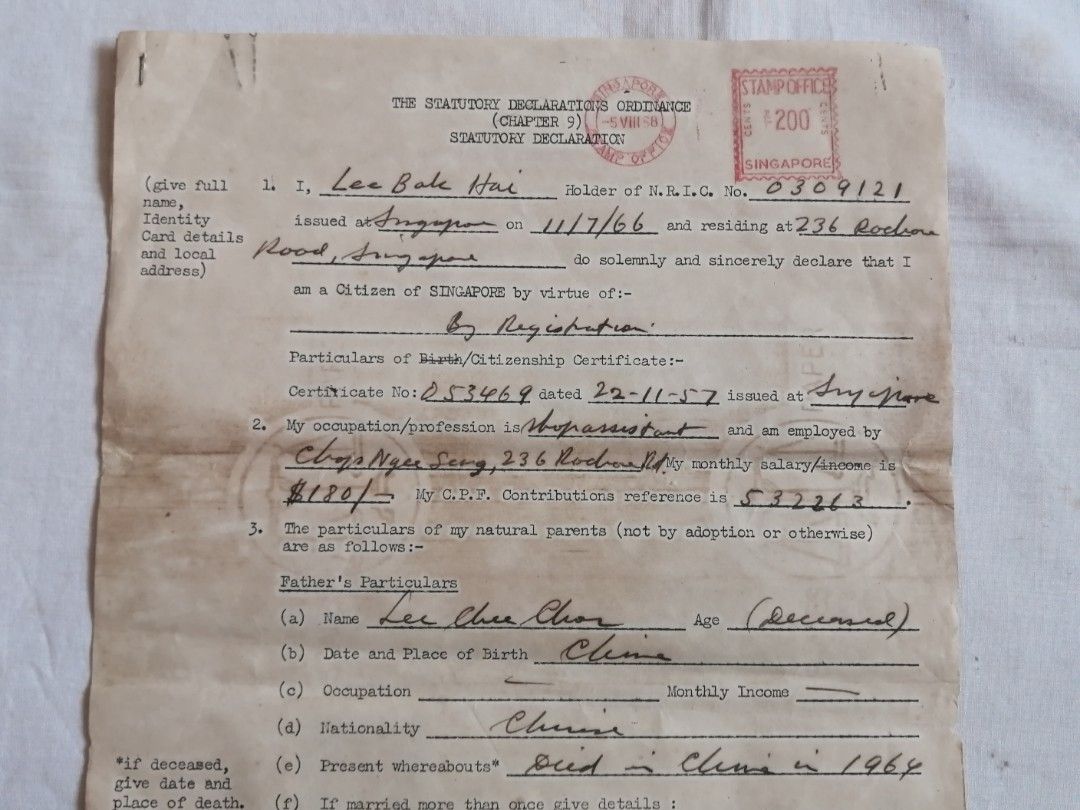 THE STATUTORY DECLARATIONS ORDINANCE
(CHAPTER 9)
STATUTORY DECLARATION
SINGAPORE
-5 VIII 68
STAMP OFFICE
STAMP OFFICE
CENTS 200 CENTS
SINGAPORE
(give full name, Identity Card details and local address)
1. I, Lee Bak Hai Holder of N.R.I.C. No. 0309121
issued at Singapore on 11/7/66 and residing at 236 Rochore
Road, Singapore do solemnly and sincerely declare that I
am a Citizen of SINGAPORE by virtue of:-
By Registration.
Particulars of Birth/Citizenship Certificate:-
Certificate No: 053469 dated 22-11-57 issued at Singapore
2. My occupation/profession is shopassistant and am employed by
Chop Ngee Seng, 236 Rochore Rd. My monthly salary/income is
$180/- My C.P.F. Contributions reference is 532263.
3. The particulars of my natural parents (not by adoption or otherwise)
are as follows:-
Father's Particulars
(a) Name Lee Chee Age (Deceased)
(b) Date and Place of Birth China
(c) Occupation — Monthly Income —
(d) Nationality Chinese
*if deceased, give date and place of death.
(e) Present whereabouts* Died in China in 1964
(f) If married more than once give details :